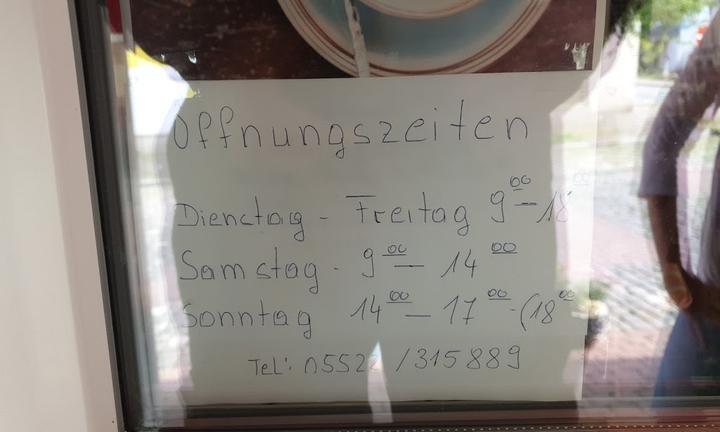 Öffnungszeiten
Dienstag - Freitag 9⁰⁰ - 18⁰⁰
Samstag - 9⁰⁰ - 14⁰⁰
Sonntag 14⁰⁰ - 17⁰⁰ - (18⁰⁰
Tel: 05522/315889